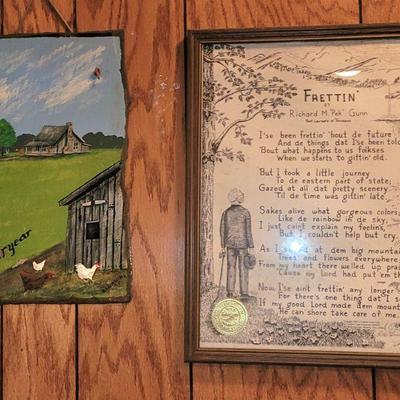 FRETTIN'
BY
Richard M. "Pek" Gunn
Poet Laureate of Tennessee
I'se been frettin' 'bout de future
And de things dat I'se been told
'Bout what happens to us folkses
When we starts to gittin' old.
But I took a little journey
To de eastern part of state;
Gazed at all dat pretty scenery
'Til de time was gittin' late.
Sakes alive what gorgeous colors
Like de rainbow in de sky,
I just cain't explain my feelin's,
But I couldn't help but cry.
As I at dem big mountain
Trees and flowers everywhere
From my heart there welled up pra
Cause my Lord had put 'em th
Now I'se ain't frettin' any longer
For there's one thing dat I s
If my good Lord made dem mount
He can shore take care of me.
ryear